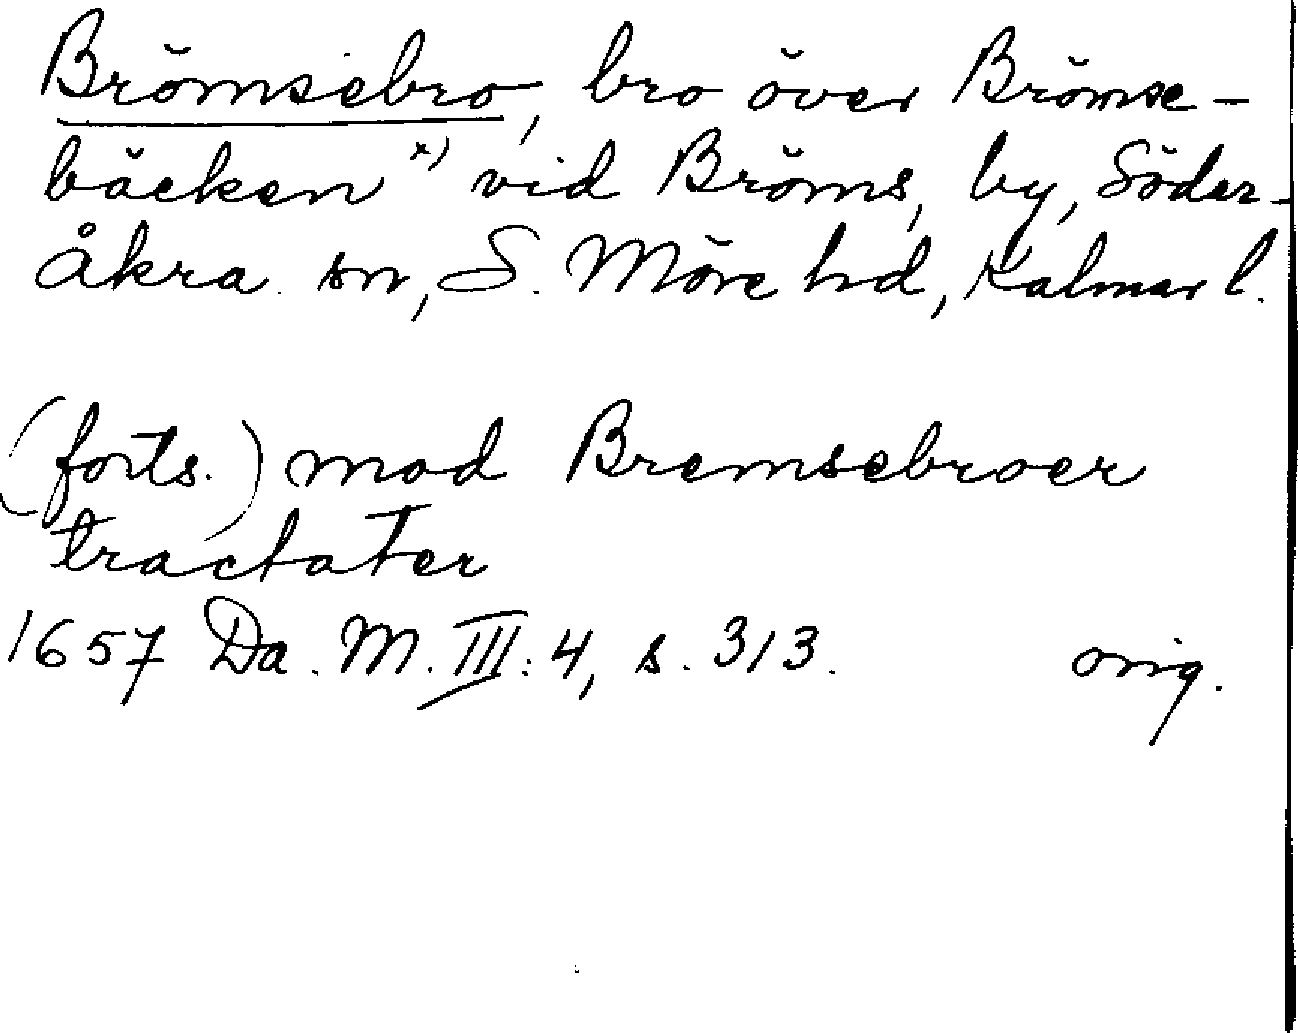 Brömsebro, bro över Brömse-
bäcken x) vid Bröms, by, Söder-
åkra sn, S. Möre hd, Kalmar l.
(forts.) mod Bremsebroer
tractater
1657 Da. M. III: 4, s. 313. orig.